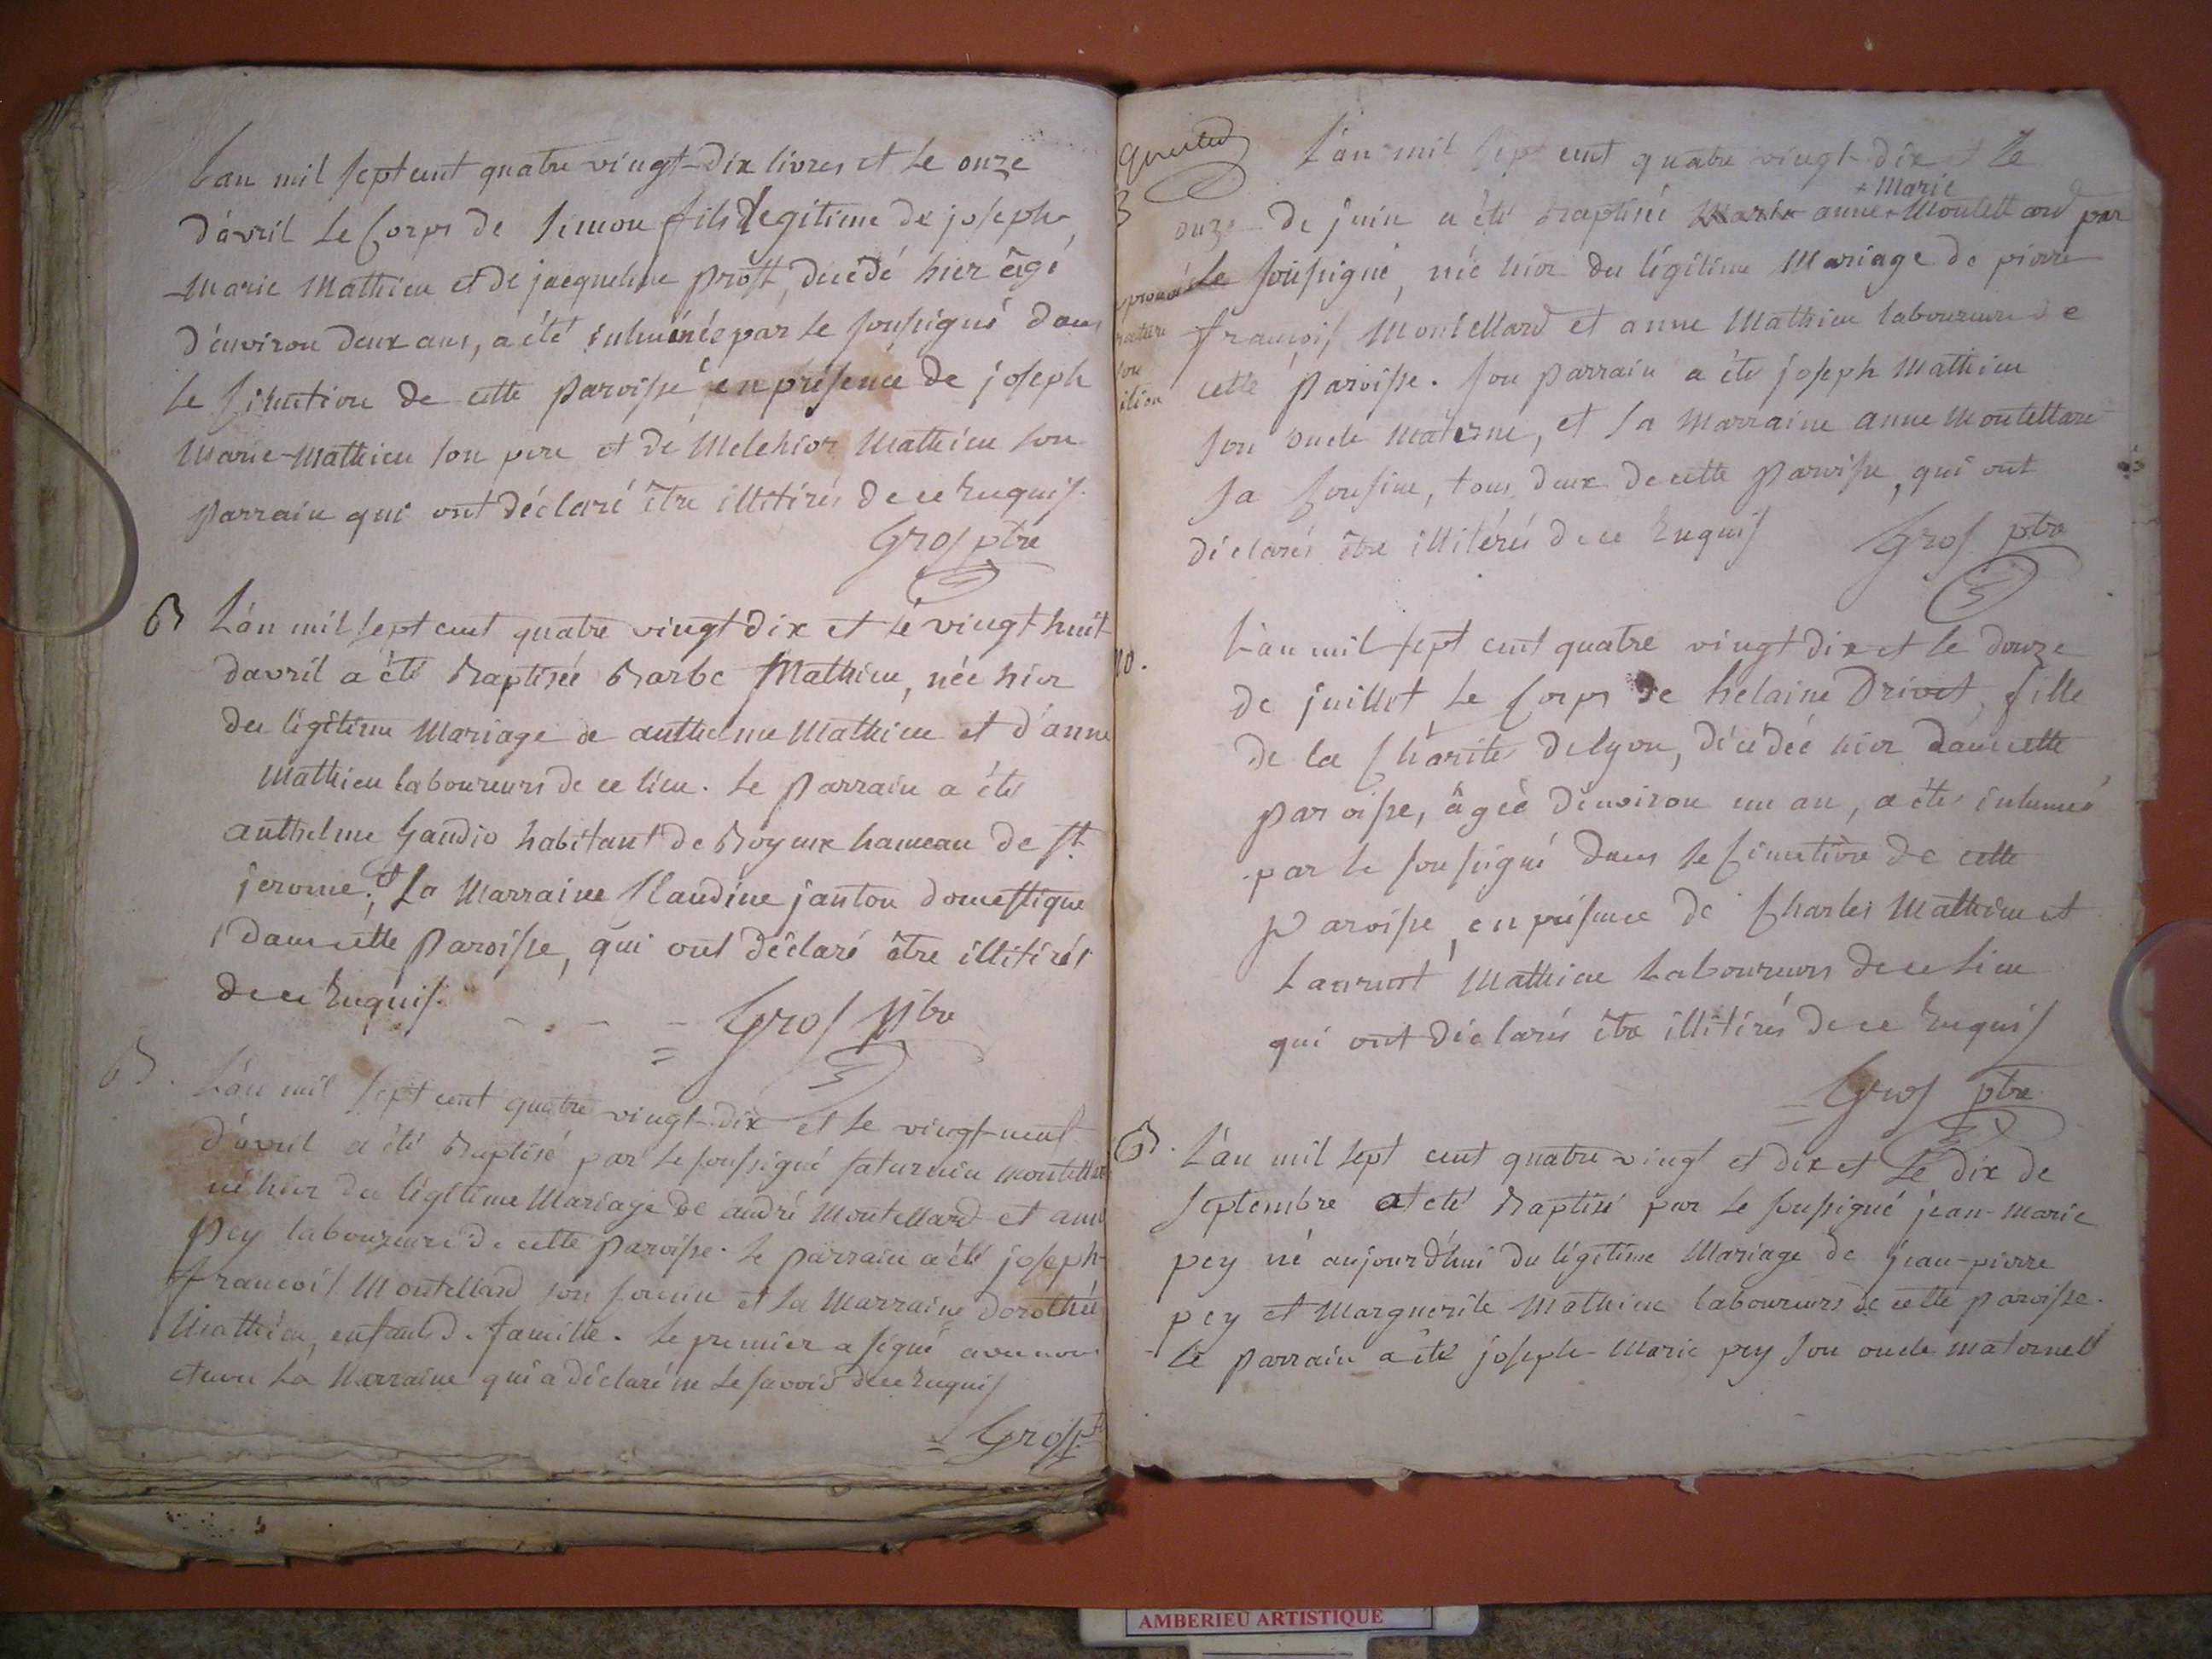 L'an mil sept cent quatre vingt-dix livres et le onze
d'avril le Corps de Simon fils légitime de joseph
Marie Mathieu et de jacqueline prost, décédé hier âgé
d'environ deux ans, a été inhumé par le soussigné dans
le Cimetiere de cette paroisse en présence de joseph
Marie-Mathieu son pere et de Melchior Mathieu son
parrain qui ont déclaré être illitirés de ce Enquis.
Gros ptre
B L'an mil sept cent quatre vingt dix et le vingt huit
d'avril a été Baptisée Barbe Mathieu, née hier
du légitime Mariage de anthelme Mathieu et d'anne
Mathieu laboureurs de ce lieu. Le Parrain a été
anthelme Gaudio habitant de Boyeux hameau de St
jerome, et La Marraine Claudine janton domestique
dans cette Paroisse, qui ont déclaré être illitirés
de ce Enquis.
Gros ptre
B. L'an mil sept cent quatre vingt-dix et le vingt-neuf
d'avril a été Baptisé par le soussigné saturnin montellard
né hier du légitime Mariage de andré Montellard et anne
pey laboureurs de cette paroisse. le parrain a été joseph-
francois Montellard son et la Marraine dorothée
Mathieu, enfants de famille. le premier a signé avec nous
et non La Marraine qui a déclaré ne le savoir de ce Enquis
= Gros pt
B L'an mil sept cent quatre vingt-dix et le
onze de juin a été Baptisé Marie anne + Montellard par
+ Marie
le soussigné, née hier du légitime Mariage de pierre
françois Montellard et anne Mathieu laboureurs de
cette paroisse. son parrain a été joseph Mathieu
son oncle materne, et sa Marraine anne Montellard
sa Cousine, tous deux de cette Paroisse, qui ont
déclarés être illitérés de ce Enquis Gros ptre
L'an mil sept cent quatre vingt dix et le douze
de juillet le Corps de helaine Drivet, fille
de la Charité de lyon, décédée hier dans cette
paroisse, âgée d'environ un an, a été inhumé
par le soussigné dans le Cimetière de cette
Paroisse, en présence de Charles Mathieu et
Laurent Mathieu Laboureurs de ce lieu
qui ont déclarés être illitirés de ce Enquis
= Gros ptre
B. L'an mil sept cent quatre vingt et dix et Le dix de
septembre at eté Baptisé par le soussigné jean-marie
pey né aujourd'hui du légitime Mariage de jean-pierre
pey et Marguerite Mathieu laboureurs de cette paroisse.
le parrain a été joseph-Marie pey son oncle maternel
AMBERIEU ARTISTIQUE